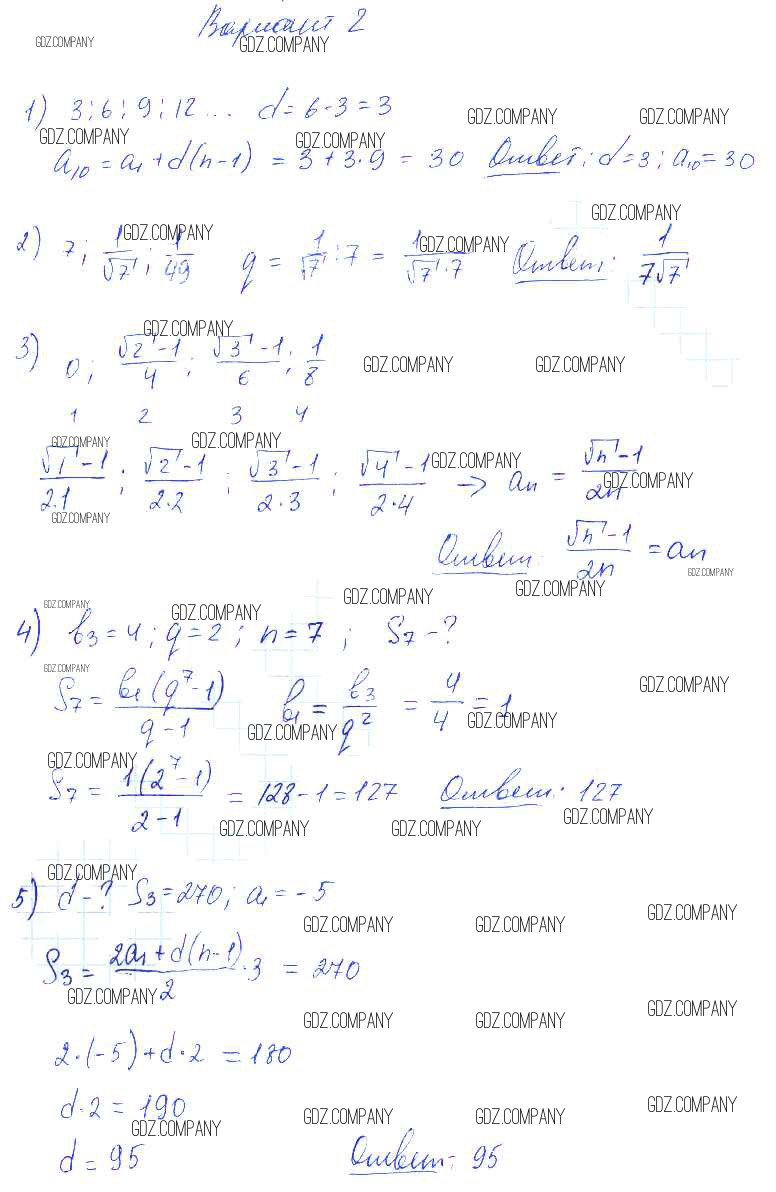 Вариант 2
1) 3; 6; 9; 12 ... d = 6 - 3 = 3
a₁₀ = a₁ + d(n-1) = 3 + 3·9 = 30 Ответ: d = 3; a₁₀ = 30
2) 7; 1/√7; 1/49 q = 1/√7 : 7 = 1/(√7·7) Ответ: 1/(7√7)
3) 0; (√2-1)/4; (√3-1)/6; 1/8
1 2 3 4
(√1-1)/(2·1); (√2-1)/(2·2); (√3-1)/(2·3); (√4-1)/(2·4) → aₙ = (√n-1)/(2n)
Ответ: (√n-1)/(2n) = aₙ
4) b₃ = 4; q = 2; n = 7; S₇ - ?
S₇ = b₁(q⁷-1)/(q-1) b₁ = b₃/q² = 4/4 = 1
S₇ = 1(2⁷-1)/(2-1) = 128 - 1 = 127 Ответ: 127
5) d - ? S₃ = 270; a₁ = -5
S₃ = (2a₁ + d(n-1))/2 · 3 = 270
2·(-5) + d·2 = 180
d·2 = 190
d = 95 Ответ: 95
GDZ.COMPANY